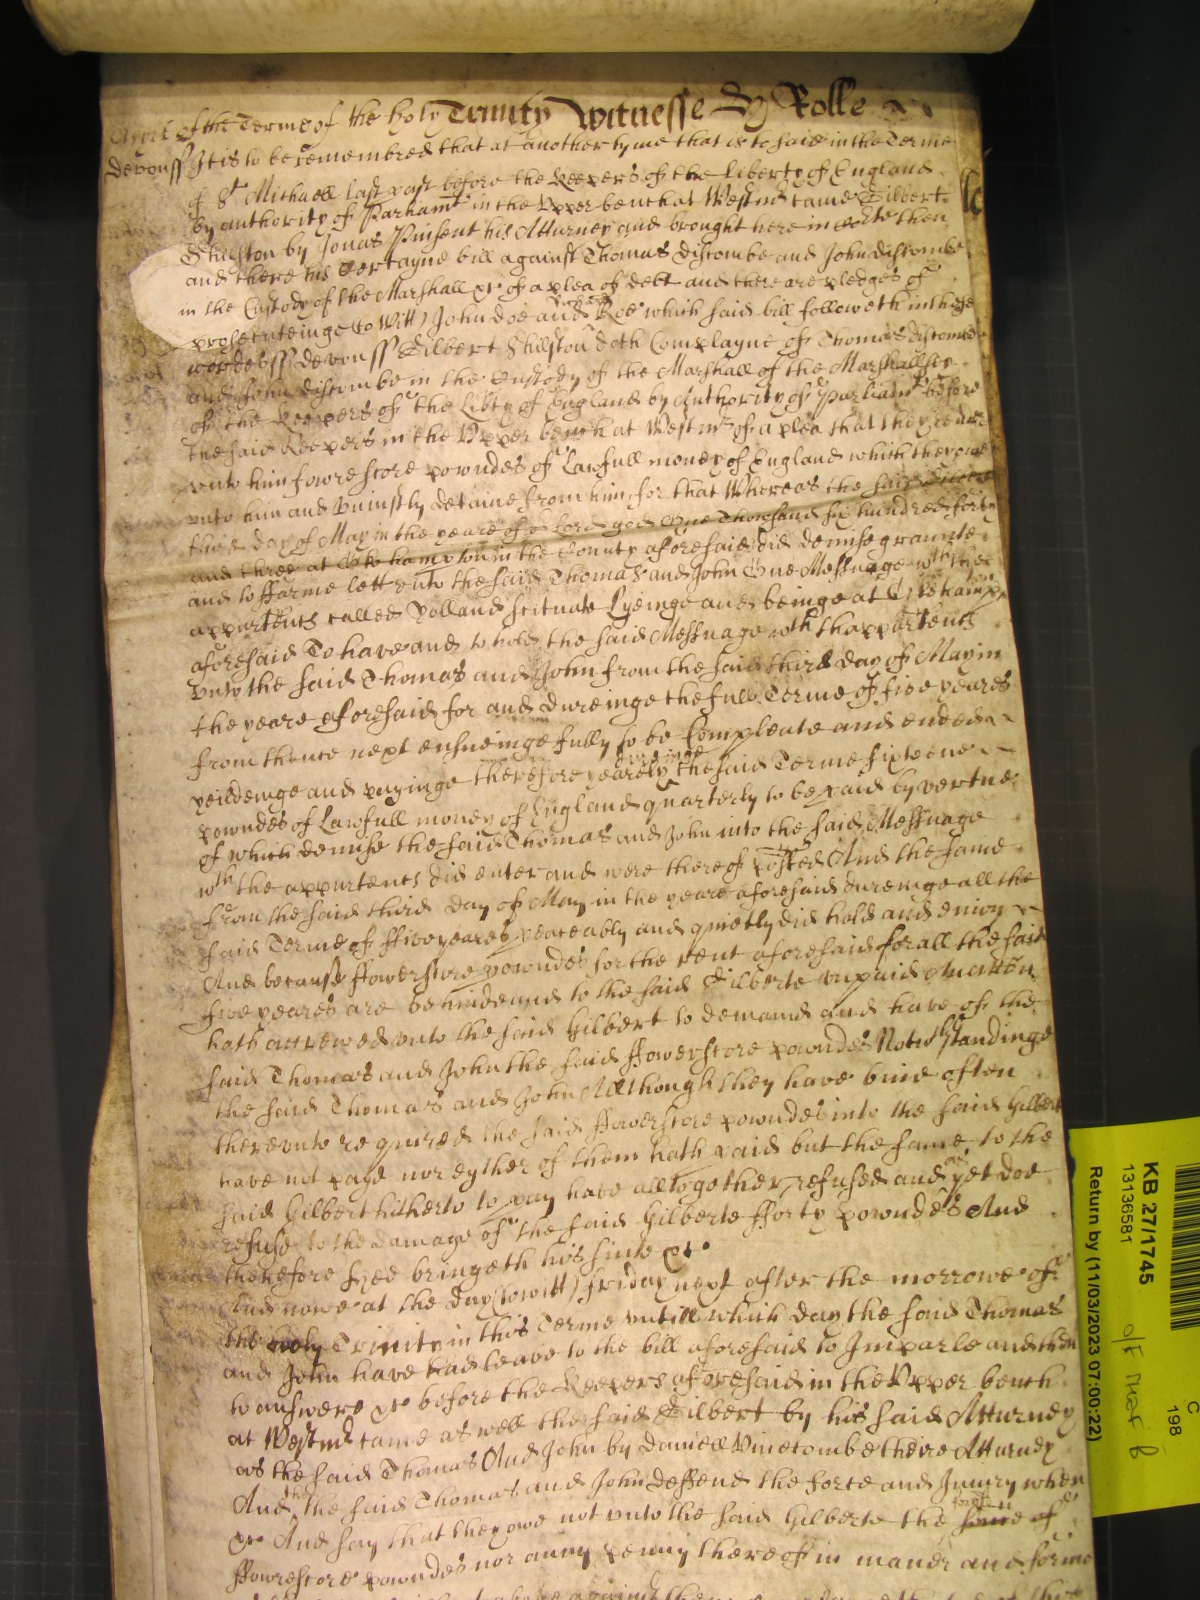 of the Terme of the holy Trinity Witnesse Hy Rolle
Devon ss It is to be remembred that at another tyme that is to saie in the Terme
of St Michaell last past before the Keepers of the liberty of England
by authority of Parliamt in the Upper bench at Westmr came Gilbert
Shilston by Jonas Pinsent his Atturney and brought here in Courte then
and there his certayne bill against Thomas Discombe and John Discombe
in the Custody of the Marshall &c of a plea of debt and there are pledges of
prosecuteinge (to witt) John Doe and Richard Roe which said bill followeth in these
wordes ss Devon ss Gilbert Shilston doth Complayne of Thomas Discombe
and John Discombe in the Custody of the Marshall of the Marshallsey
of the Keepers of the Libty of England by Authority of Parliamt before
the said Keepers in the Upper bench at Westmr of a plea that they render
unto him fowre score powndes of Lawfull money of England which they owe
unto him and uniustly detaine from him, for that Whereas the said Gilbert
third day of May in the yeare of or Lord god One Thowsand six hundred forty
and three at Okehampton in the County aforesaid did demise graunte
and to ffarme lett unto the said Thomas and John One Messuage wth the
appurtencs called Yolland scituate Lyeinge and beinge at Okehampton
aforesaid To have and to hold the said Messuage wth thappurtencs
unto the said Thomas and John from the said third day of May in
the yeare aforesaid for and dureinge the full Terme of five yeares
from thence next ensueinge fully to be Compleate and ended
yeildeinge and payinge therefore yearely dureinge the said Terme sixteene
powndes of Lawfull money of England quarterly to be paid by vertue
of which demise the said Thomas and John into the said Messuage
wth the appurtencs did enter and were thereof possesed And the same
from the said third day of May in the yeare aforesaid dureinge all the
said Terme of ffive yeares peaceably and quietly did hold and enioy
And because ffowerscore powndes for the rent aforesaid for all the said
five yeares are behinde and to the said Gilberte unpaid an accon
hath accrewed unto the said Gilbert to demand and have of the
said Thomas and John the said ffowerscore powndes Notwthstandinge
the said Thomas and John Allthough they have bine often
thereunto required the said ffowerscore powndes unto the said Gilbert
have not payd nor eyther of them hath paid but the same to the
said Gilbert hitherto to pay have alltogether refused and as yet doe
refuse to the damage of the said Gilberte fforty powndes And
therefore hee bringeth his suite &c
And nowe at the day (to witt) Friday next after the morrowe of
the holy Trinity in this Terme untill which day the said Thomas
and John have had leave to the bill aforesaid to Imparle and then
to answere &c before the Keepers aforesaid in the Upper bench
at Westmr came as well the said Gilbert by his said Atturney
as the said Thomas And John by Daniell Vinecombe theire Atturney
And the said Thomas and John deffend the force and Iniury when
&c And say that they owe not unto the said Gilberte the said of
ffowrescore powndes nor anny penny thereof in maner and forme
KB 27/1745
13136581
Return by (11/03/2023 07:00:22)
C
198